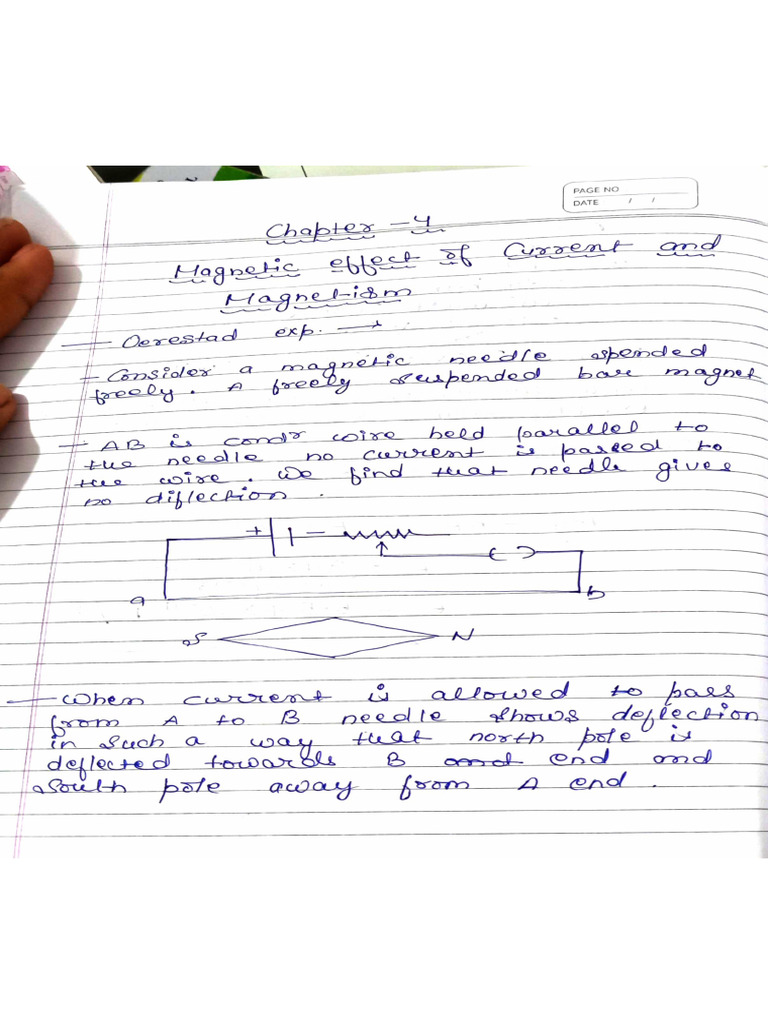 PAGE NO
DATE / /
Chapter - 4
Magnetic effect of Current and
Magnetism
— Oerestad exp. →
- Consider a magnetic needle spended
freely. A freely suspended bar magnet
- AB is condr wire held parallel to
the needle no current is passed to
the wire. We find that needle gives
no diflection.
+ -
a b
S N
— When current is allowed to pass
from A to B needle shows deflection
in such a way that north pole is
deflected towards B end and
South pole away from A end.